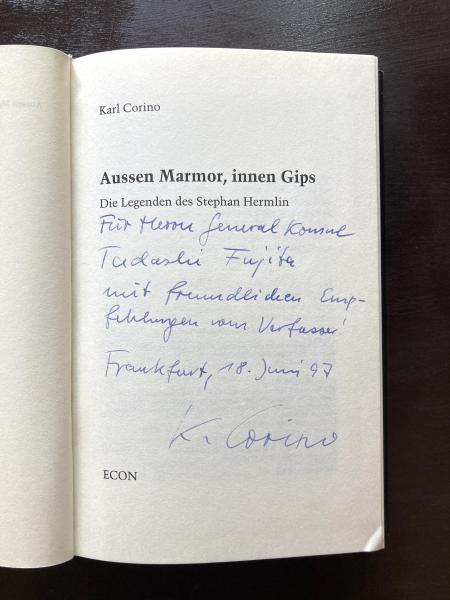 Karl Corino
Aussen Marmor, innen Gips
Die Legenden des Stephan Hermlin
Für Herrn General Konsul
Tadashi Fujita
mit freundlichen Emp-
fehlungen vom Verfasser!
Frankfurt, 18. Juni 97
K. Corino
ECON